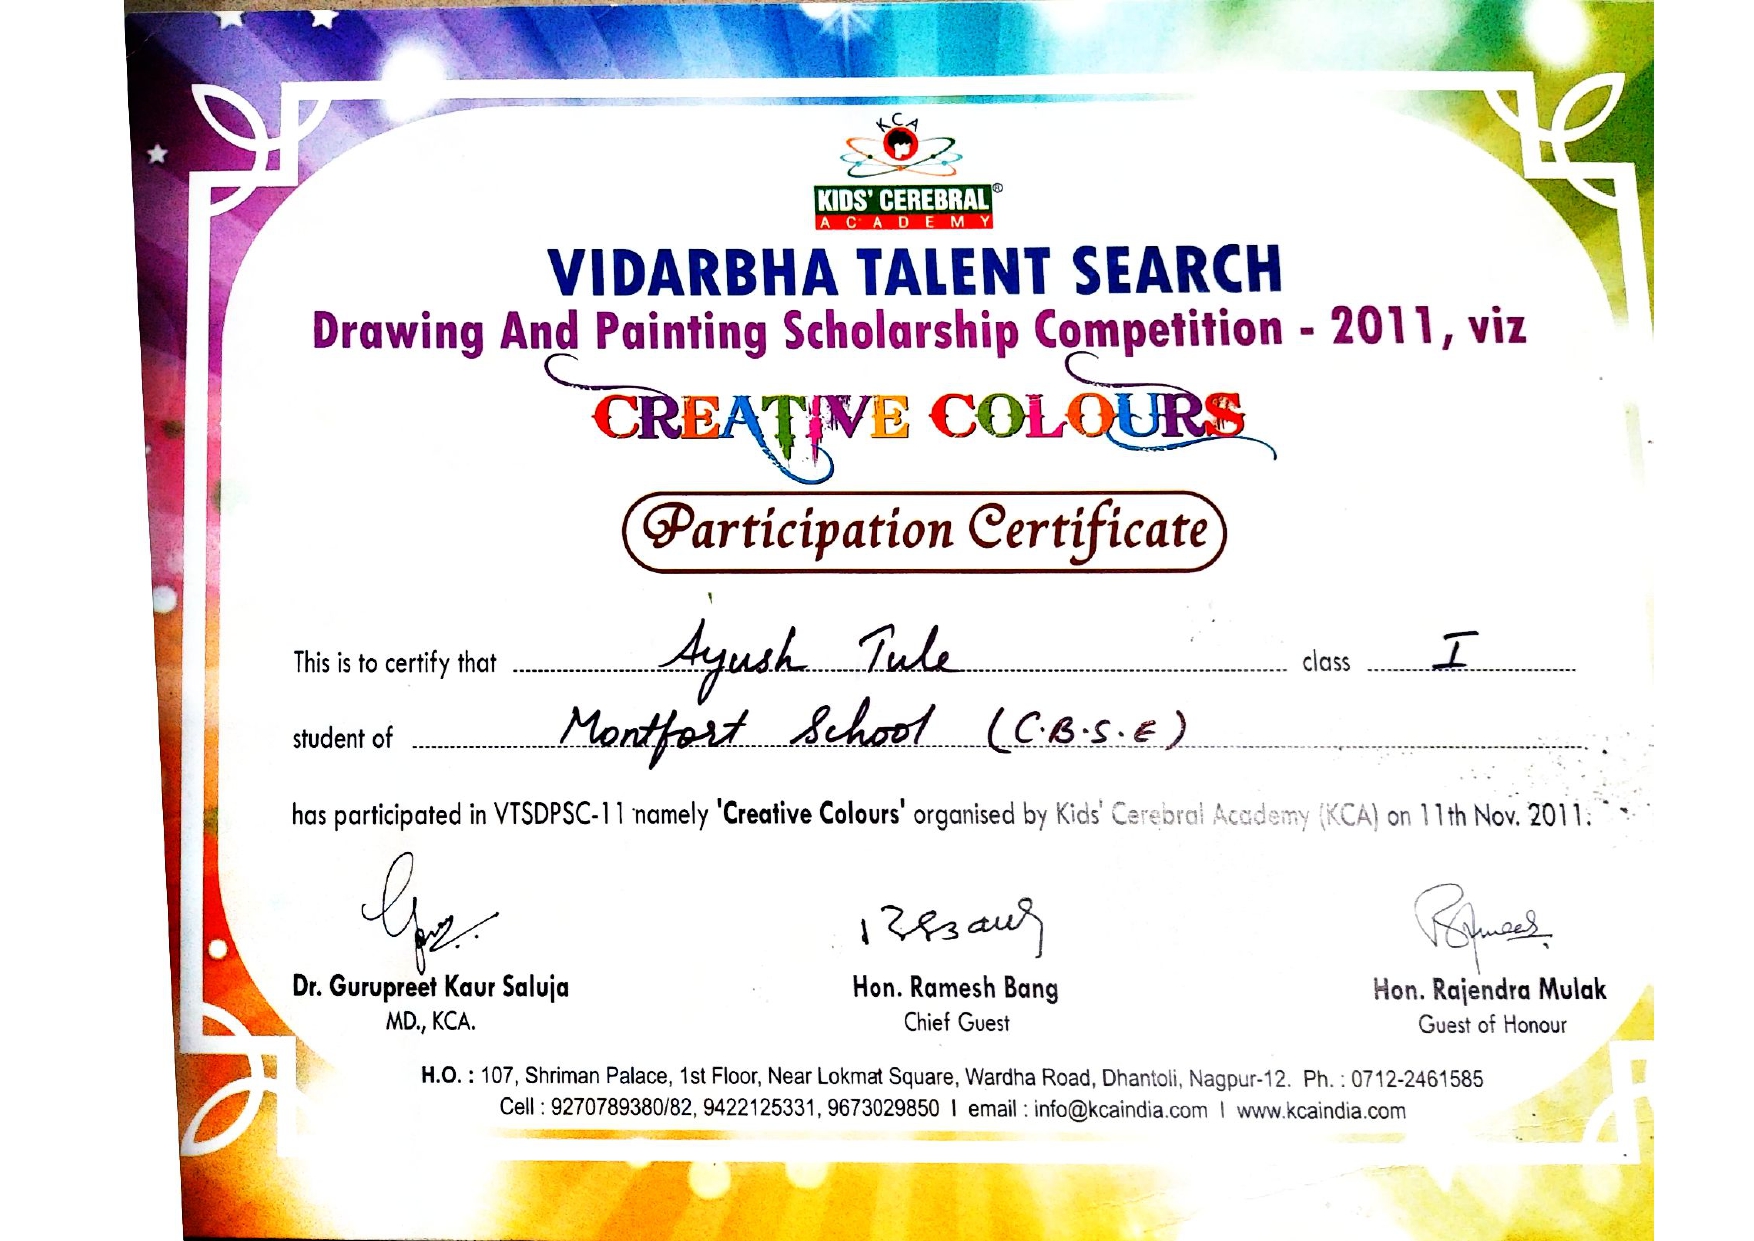 KCA
KIDS' CEREBRAL®
ACADEMY
VIDARBHA TALENT SEARCH
Drawing And Painting Scholarship Competition - 2011, viz
CREATIVE COLOURS
Participation Certificate
This is to certify that Ayush Tule class I
student of Montfort School (C.B.S.E)
has participated in VTSDPSC-11 namely 'Creative Colours' organised by Kids' Cerebral Academy (KCA) on 11th Nov. 2011.
Dr. Gurupreet Kaur Saluja Hon. Ramesh Bang Hon. Rajendra Mulak
MD., KCA. Chief Guest Guest of Honour
H.O. : 107, Shriman Palace, 1st Floor, Near Lokmat Square, Wardha Road, Dhantoli, Nagpur-12. Ph. : 0712-2461585
Cell : 9270789380/82, 9422125331, 9673029850 I email : info@kcaindia.com I www.kcaindia.com